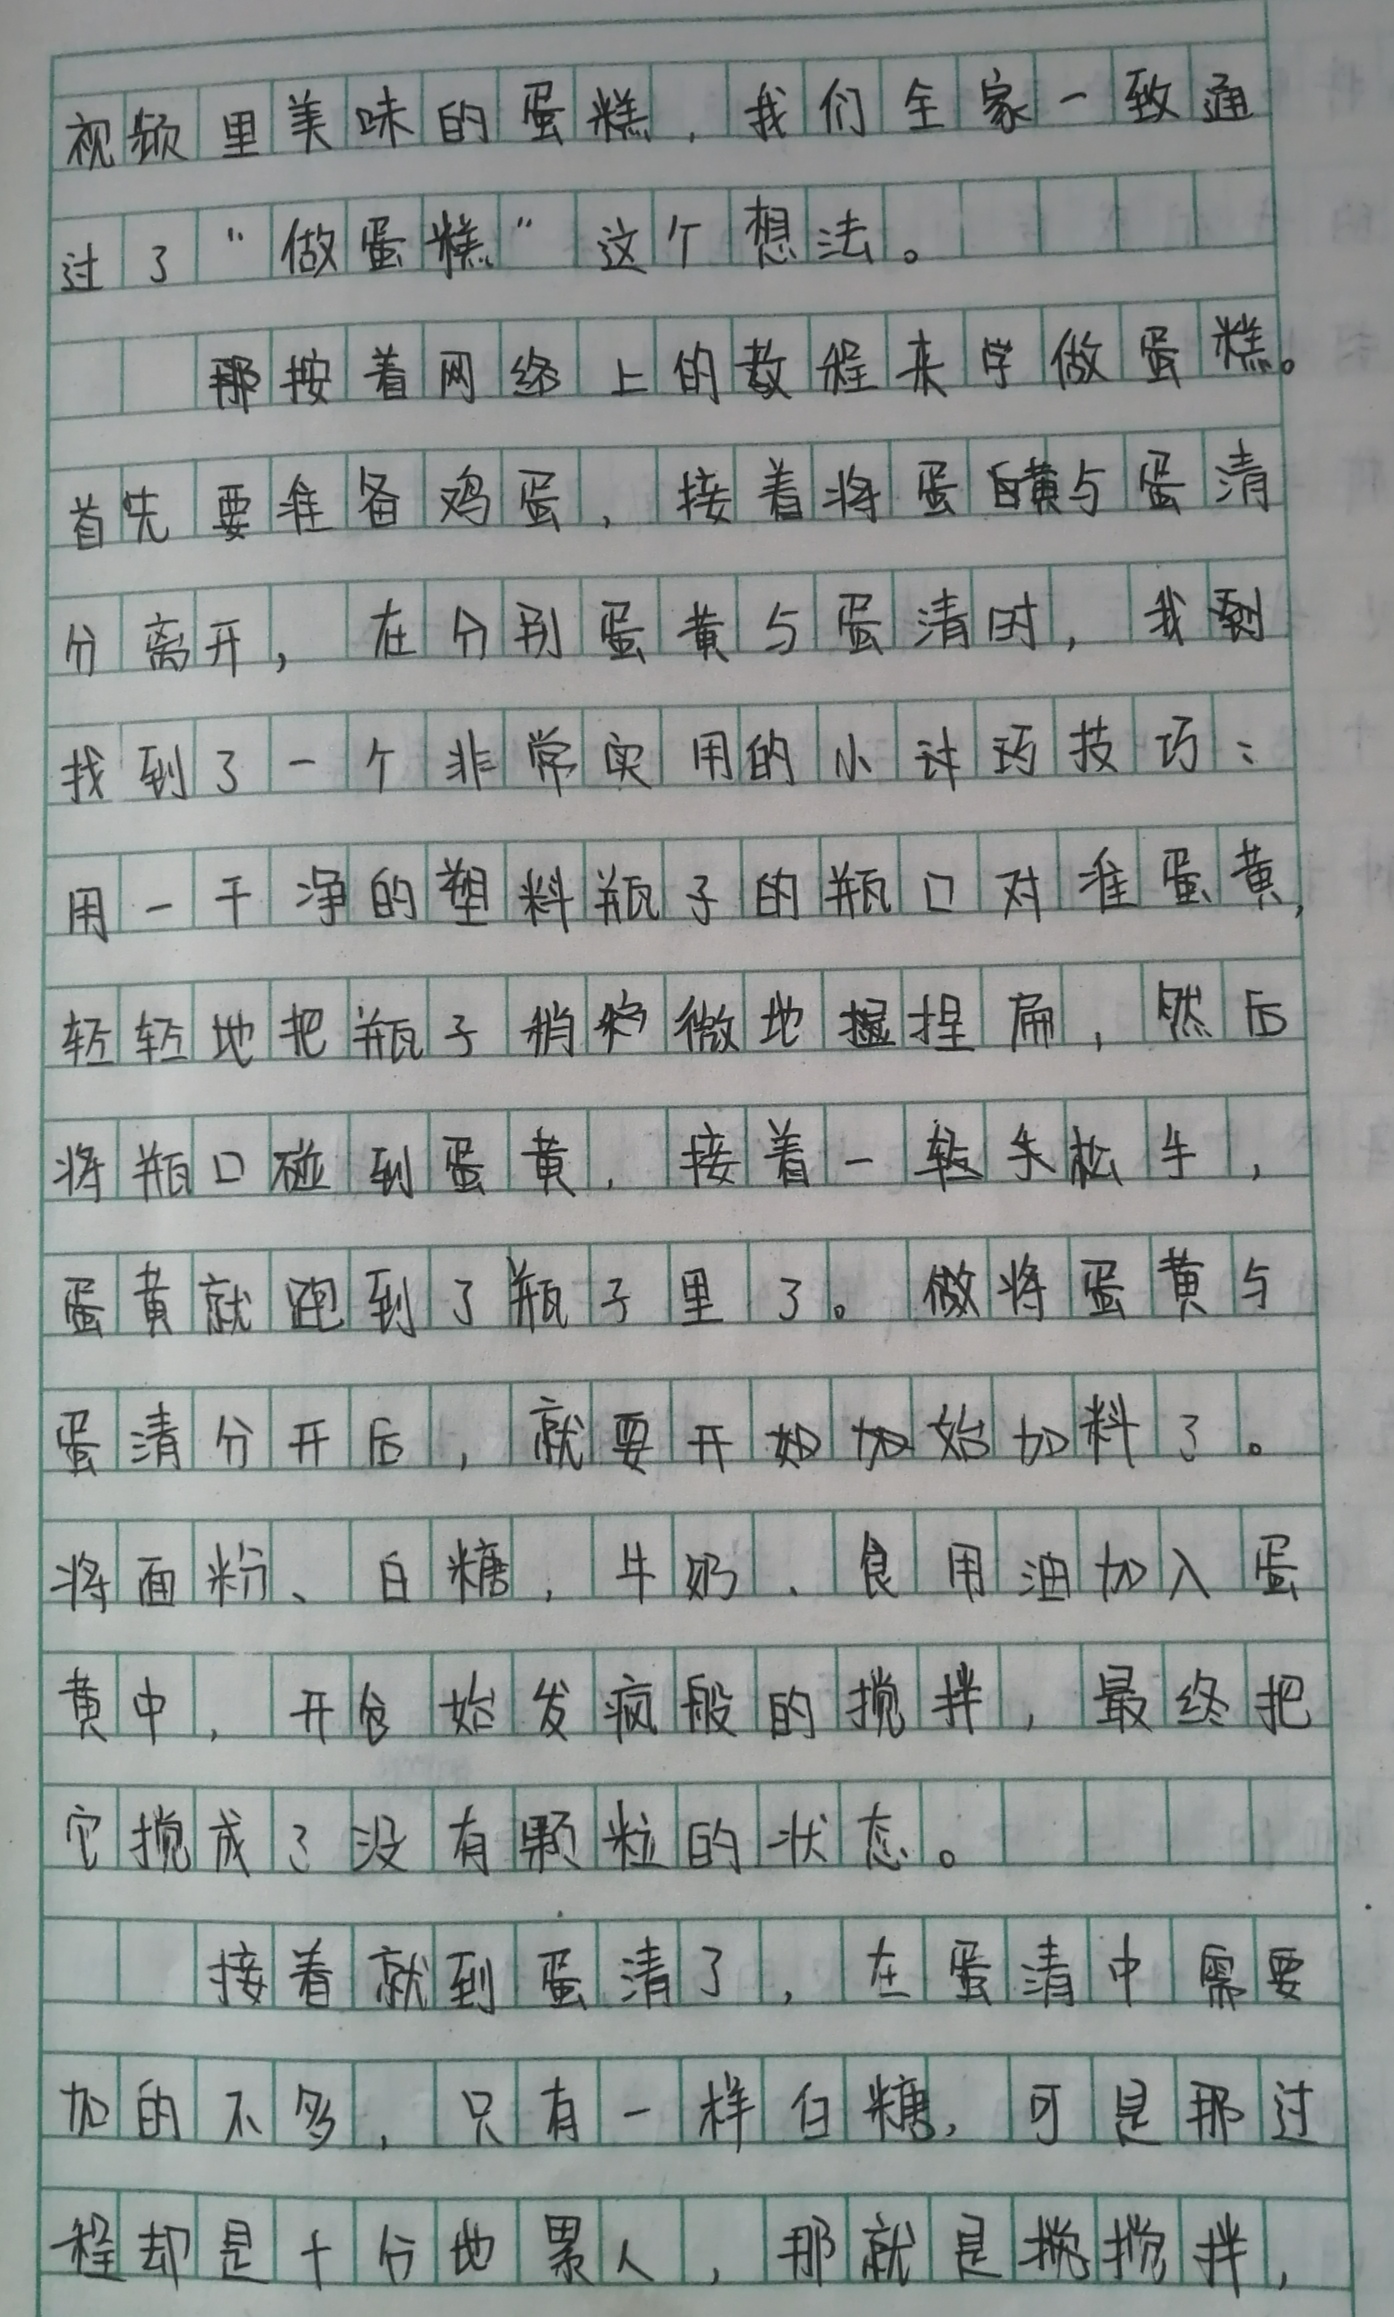 视频里美味的蛋糕，我们全家一致通
过了“做蛋糕”这个想法。
那按着网络上的教程来学做蛋糕。
首先要准备鸡蛋，接着将蛋黄与蛋清
分离开，在分别蛋黄与蛋清时，我
找到了一个非常实用的小技巧：
用一干净的塑料瓶子的瓶口对准蛋黄，
轻轻地把瓶子稍微地捏扁，然后
将瓶口碰到蛋黄，接着一松手，
蛋黄就跑到了瓶子里了。做将蛋黄与
蛋清分开后，就要开始加料了。
将面粉、白糖，牛奶、食用油加入蛋
黄中，开始发疯般的搅拌，最终把
它搅成了没有颗粒的状态。
接着就到蛋清了，在蛋清中需要
加的不多，只有一样白糖，可是那过
程却是十分地累人，那就是搅搅拌，